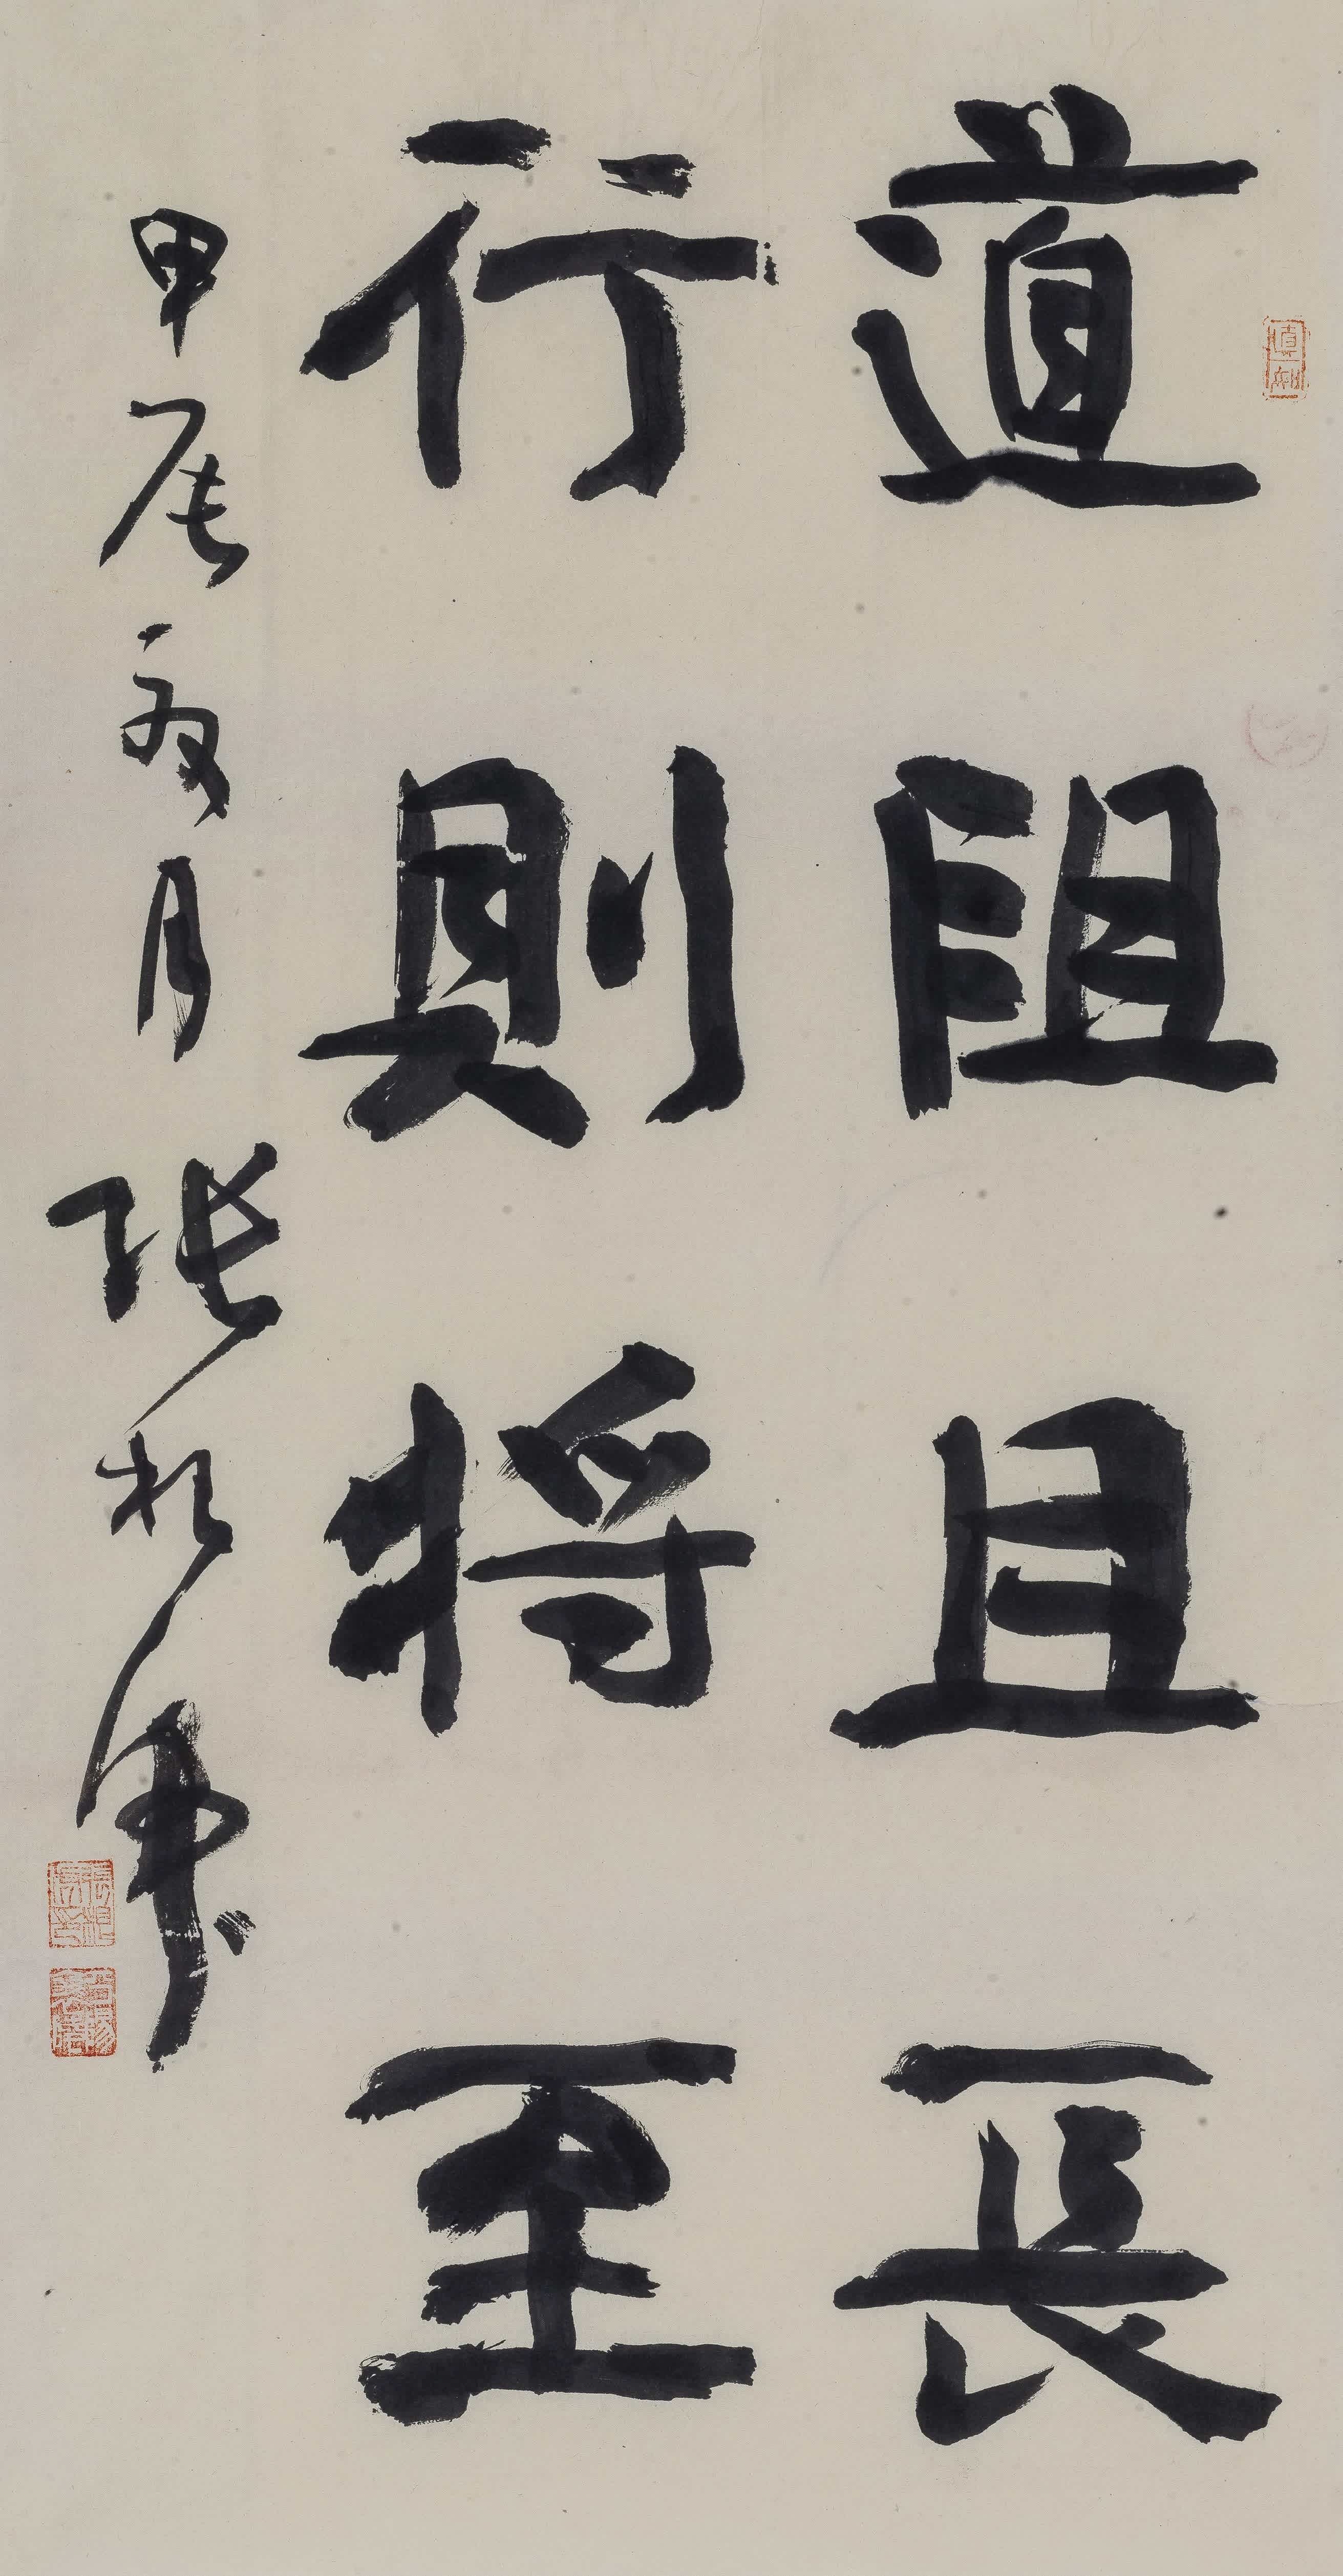 道阻且長
行則將至
甲辰夏月 張松